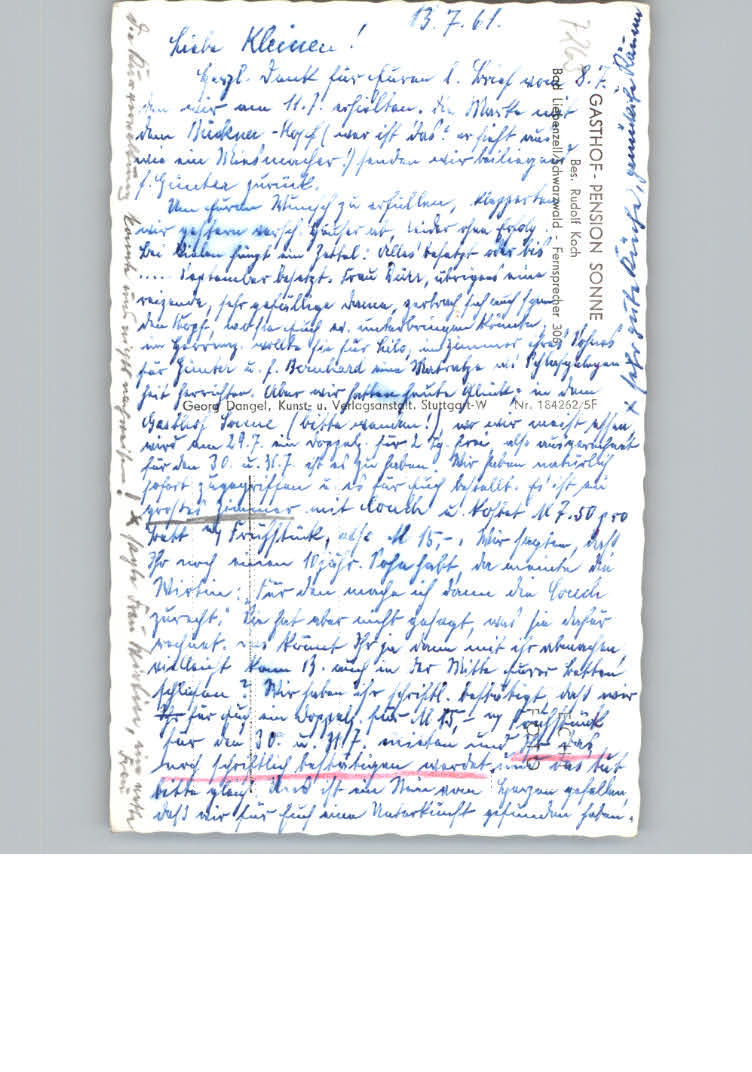 13.7.61.
Liebe Kleinen!
Herzl. Dank für Euren l. Brief vom 8.7.
den wir am 11.7. erhielten. Die Marke mit
dem Bückner-Kopf (wer ist das? er sieht aus
wie ein Miesmacher!) senden wir beiliegend
f. Günter zurück.
Um Euren Wunsch zu erfüllen, klapperten
wir gestern versch. Häuser ab, leider ohne Erfolg.
Bei Vielen hängt ein Zettel: Alles besetzt oder bis
.... September besetzt. Frau Dürr, übrigens eine
reizende, sehr gefällige Dame, zerbrach sich auch schon
den Kopf, wo sie Euch ev. unterbringen könnte,
im wollte sie für Lilo, im Zimmer ihres Sohnes
für Günter u. f. Bernhard eine Matratze als Schlafgelegen
heit herrichten. Aber wir hatten heute Glück: in dem
Gasthof Sonne (bitte wenden!), wo wir meist essen,
wird am 29.7. ein Doppelz. für 2 Tg. frei, also ausgerechnet
für den 30. u. 31.7. ist es zu haben. Wir haben natürlich
sofort zugegriffen u. es für Euch bestellt. Es ist ein
großes Zimmer mit Couch u. kostet M 7.50 pro
Bett m/ Frühstück, also M 15.-. Wir sagten, daß
Ihr noch einen 10jähr. Sohn habt, da meinte die
Wirtin: "Für den mache ich dann die Couch
zurecht." Sie hat aber nicht gesagt, was sie dafür
rechnet. Das könnt Ihr ja dann mit ihr abmachen,
vielleicht kann B. auch in der Mitte Eurer Betten
schlafen? Wir haben ihr schriftl. bestätigt, daß wir
für Euch ein Doppelz. für M 15,- m/ Frühstück
für den 30. u. 31.7. mieten und Ihr das
noch schriftlich bestätigen werdet, und das tut
bitte gleich! Uns ist ein Stein vom Herzen gefallen,
daß wir für Euch eine Unterkunft gefunden haben.
Die Kurverwaltung konnte uns nichts nachweisen! x sagte Frau Wirtin, eine nette Frau
x sehr gute Küche, gemütliche Räume
GASTHOF - PENSION SONNE
Bes. Rudolf Koch
Bad Liebenzell/Schwarzwald - Fernsprecher 306
Georg Dangel, Kunst- u. Verlagsanstalt, Stuttgart-W Nr. 184262/5F
ECHT
FOTO